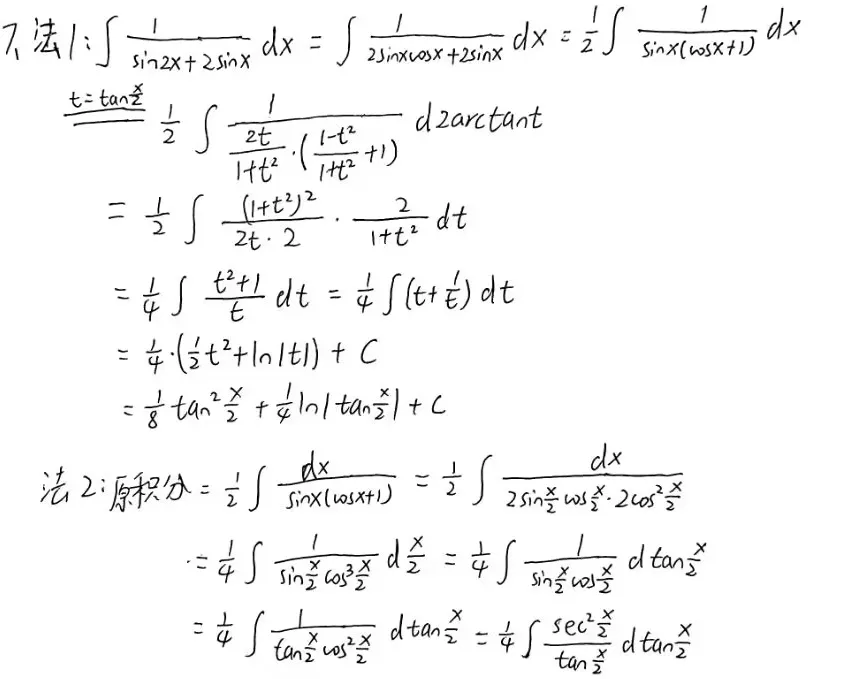 7、法1: ∫ 1/(sin2x+2sinx) dx = ∫ 1/(2sinxcosx+2sinx) dx = 1/2 ∫ 1/(sinx(cosx+1)) dx
t=tan(x/2) 1/2 ∫ 1/((2t/(1+t²))·((1-t²)/(1+t²)+1)) d2arctant
= 1/2 ∫ (1+t²)²/(2t·2) · 2/(1+t²) dt
= 1/4 ∫ (t²+1)/t dt = 1/4 ∫(t+1/t) dt
= 1/4·(1/2 t²+ln|t|) + C
= 1/8 tan² x/2 + 1/4 ln|tan x/2| + C
法2:原积分 = 1/2 ∫ dx/(sinx(cosx+1)) = 1/2 ∫ dx/(2sin x/2 cos x/2 · 2cos² x/2)
= 1/4 ∫ 1/(sin x/2 cos³ x/2) d x/2 = 1/4 ∫ 1/(sin x/2 cos x/2) d tan x/2
= 1/4 ∫ 1/(tan x/2 cos² x/2) d tan x/2 = 1/4 ∫ (sec² x/2)/(tan x/2) d tan x/2